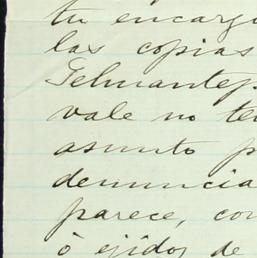 tu encargo
las copias
Tehuantep
vale no te
asunto p
denuncia
parece, con
ò ejidos de